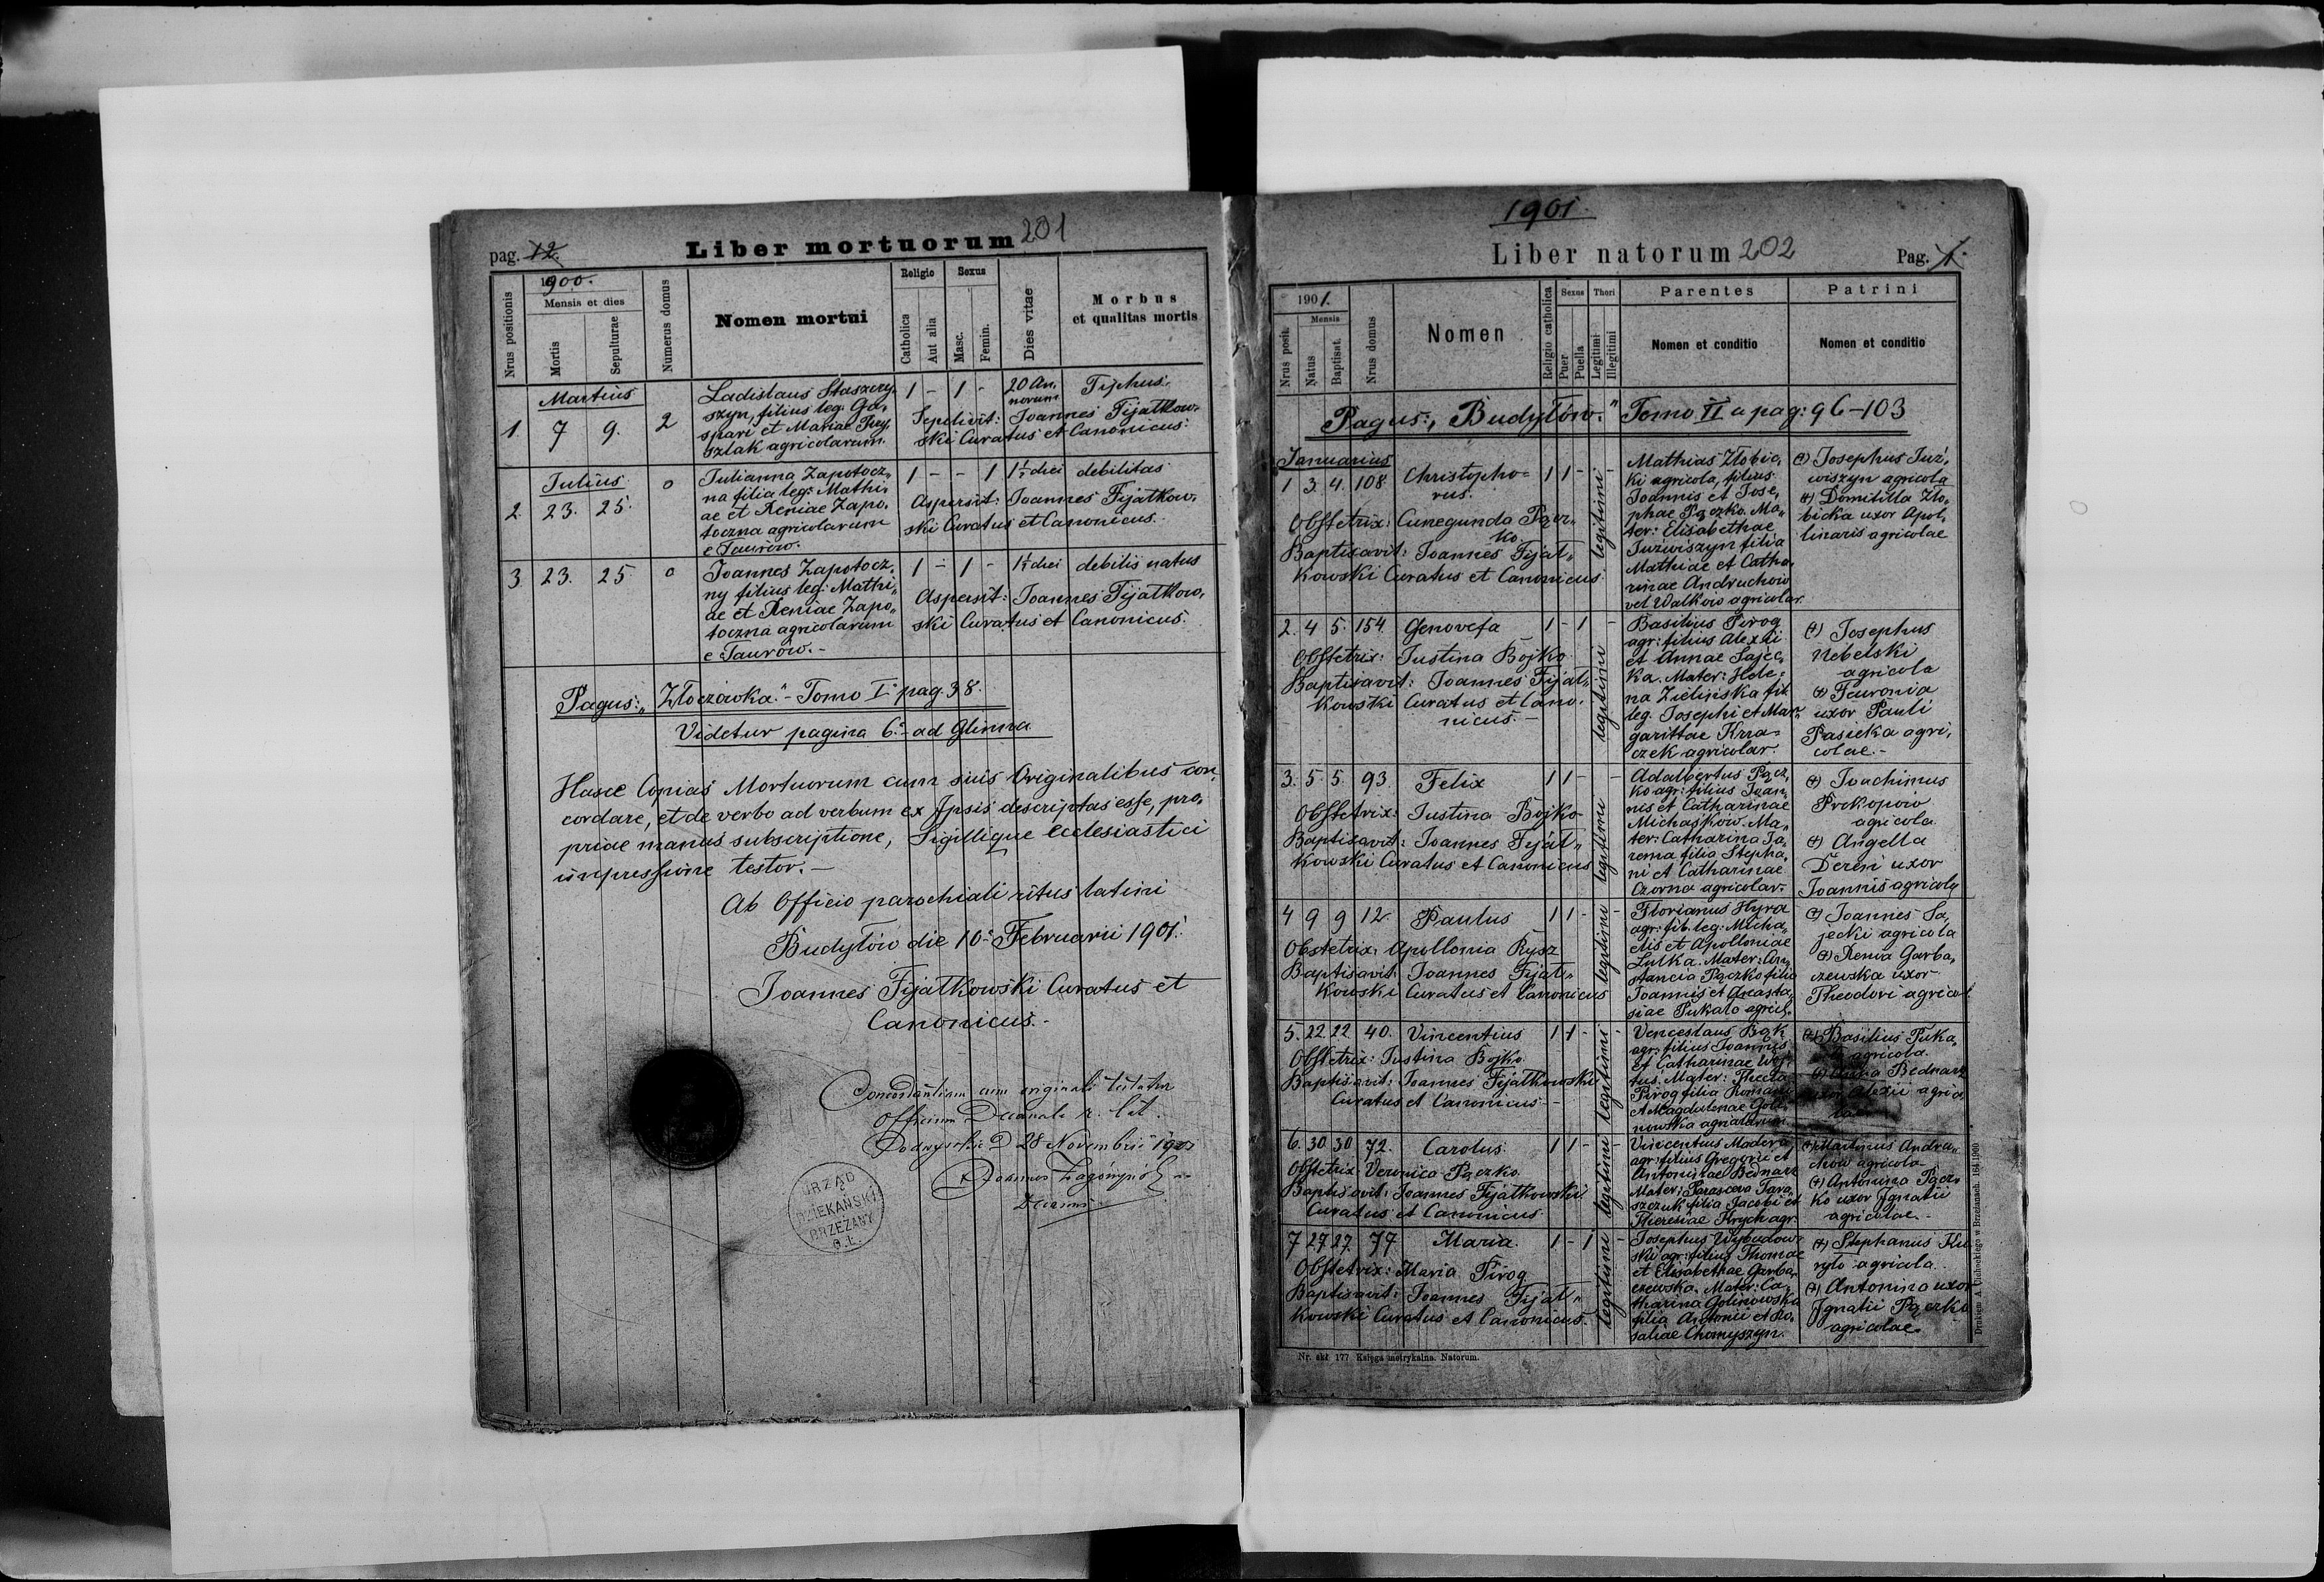 pag. 12.
Liber mortuorum 201
1900.
Nrus positionis
Mensis et dies
Mortis
Sepulturae
Numerus domus
Nomen mortui
Religio
Catholica
Aut alia
Sexus
Masc.
Femin.
Dies vitae
Morbus
et qualitas mortis
Martius
1. 7 9. 2
Ladislaus Staszczy,
szyn, filius leg: Ga,
spari et Mariae
szlak agricolarum.
1 - 1 -
20 An,
norum
Typhus
Sepelivit: Joannes Fijałkow,
ski Curatus et Canonicus.
Julius
2. 23. 25. 0
Julianna Zapotocz,
na filia leg: Mathi,
ae et Xeniae Zapo,
toczna agricolarum
e Taurów.
1 - - 1 1½ diei debilitas
Aspersit: Joannes Fijałkow,
ski Curatus et Canonicus.
3 23. 25. 0
Joannes Zapotocz,
ny filius leg: Mathi,
ae et Xeniae Zapo,
toczna agricolarum
e Taurów.-
1 - 1 - diei debilis natus
Aspersit: Joannes Fijałkow,
ski Curatus et Canonicus.
Pagus: „Złoczówka" - Tomo I. pag. 38.
Videtur pagina 6. - ad Glinna.
Hasce Copias Mortuorum cum suis Originalibus con,
cordare, et de verbo ad verbum ex Ipsis descriptas esse, pro,
priae manus subscriptione, Sigillique ecclesiastici
impressione testor.-
Ab Officio parochiali ritus latini
Budyłów die 10. Februarii 1901.
Joannes Fijałkowski Curatus et
Canonicus.-
Concordantiam cum originali testatur
Officium Decanale r. lat.
28 Novembris
Decanus
URZĄD
DZIEKAŃSKI
BRZEŻANY
O.Ł.
1901.
Liber natorum 202
Pag. 1.
1901.
Nrus posit.
Mensis
Natus
Baptisat.
Nrus domus
Nomen
Religio catholica
Sexus
Puer
Puella
Thori
Legitimi
Illegitimi
Parentes
Nomen et conditio
Patrini
Nomen et conditio
Pagus: „Budyłów." Tomo II a pag: 96-103
Januarius
1 3. 4. 108. Christopho=
rus. 1 1 - -
Obstetrix: Cunegunda Pącz,
ko
Baptisavit: Joannes Fijał,
kowski Curatus et Canonicus.
legitimi
Mathias Złobic,
ki agricola, filius
Joannis et Jose,
phae Pączko. Ma,
ter: Elisabethae
Juzwiszyn filia
Mathiae et Catha,
rinae Andruchow
vel Walkow agricolar.
(+) Josephus Juz,
wiszyn agricola
(+) Domitilla Zło,
bicka uxor Apol,
linaris agricolae
2. 4 5. 154. Genovefa 1 - 1 -
Obstetrix: Justina Bojko
Baptisavit: Joannes Fijał,
kowski Curatus et Cano,
nicus.-
legitimi
Basilius Pirog
agr: filius Alexii
et Annae Sajec,
ka. Mater: Hele,
na Zielińska fil.
leg. Josephi et Mar,
garittae Kra=
czek agricolar.
(+) Josephus
Nebelski
agricola
(+) Feuronia
uxor Pauli
Pasieka agri,
colae.-
3. 5. 5. 93. Felix 1 1 - -
Obstetrix: Justina Bojko
Baptisavit: Joannes Fijał,
kowski Curatus et Canonicus
legitimi
Adalbertus Pącz,
ko agr: filius Joan,
nis et Catharinae
Michaśkow. Ma,
ter: Catharina Ja,
rema filia Stepha,
ni et Catharinae
Czorna agricolar.
(+) Joachimus
Prokopow
agricola
(+) Angella
Dereń uxor
Joannis agricola
4 9 9 12. Paulus 1 1 - -
Obstetrix: Apollonia Rysz
Baptisavit: Joannes Fijał,
kowski Curatus et Canonicus
legitimi
Florianus Hyra
agr: fil. leg: Micha,
elis et Apolloniae
Lulka. Mater: Con,
stancia Pączko filia
Joannis et Anasta,
siae Pukało agricol.
(+) Joannes Sa,
jecki agricola
(+) Xenia Garba,
czewska uxor
Theodori agricol.
5. 22 22 40. Vincentius 1 1 - -
Obstetrix: Justina Bojko.
Baptisavit: Joannes Fijałkowski
Curatus et Canonicus -
legitimi
Venceslaus Bąk
agr: filius Joannis
et Catharinae Woj,
tus. Mater: Thecla
Pirog filia Romani
et Magdalenae Goli,
nowska agricolarum.
(+) Basilius Puka,
agricola.
(+) Bednarz
uxor Alexii agrico
lae
6. 30 30 72. Carolus 1 1 - -
Obstetrix Veronica Pączko.
Baptisavit: Joannes Fijałkowski
Curatus et Canonicus.
legitimi
Vincentius Madera
agr: filius Gregorii et
Antoninae Bednarz
Mater: Parasceva Tara,
szczuk filia Jacobi et
Theresiae Krych agr.
(+) Martinus Andru,
chow agricola
(+) Antonina Pącz,
ko uxor Ignatii
agricolae.-
7 27 27. 77 Maria. 1 - 1 -
Obstetrix: Maria Pirog
Baptisavit: Joannes Fijał,
kowski Curatus et Canonicus.
legitimi
Josephus Wybudow,
ski agr: filius Thomae
et Elisabethae Garba,
czewska. Mater: Ca,
tharina Golinowska
filia Antonii et Ro,
saliae Chomyszyn.
(+) Stephanus Ku
ryło agricola.
(+) Antonina uxor
Ignatii Pączko
agricolae.
Nr. skł. 177 Księga metrykalna. Natorum.